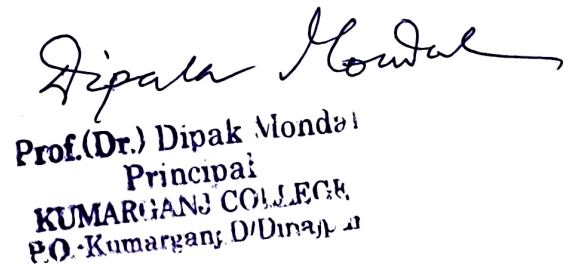 Dipak Mondal
Prof.(Dr.) Dipak Mondal
Principal
KUMARGANJ COLLEGE
P.O.-Kumarganj D/Dinajpur